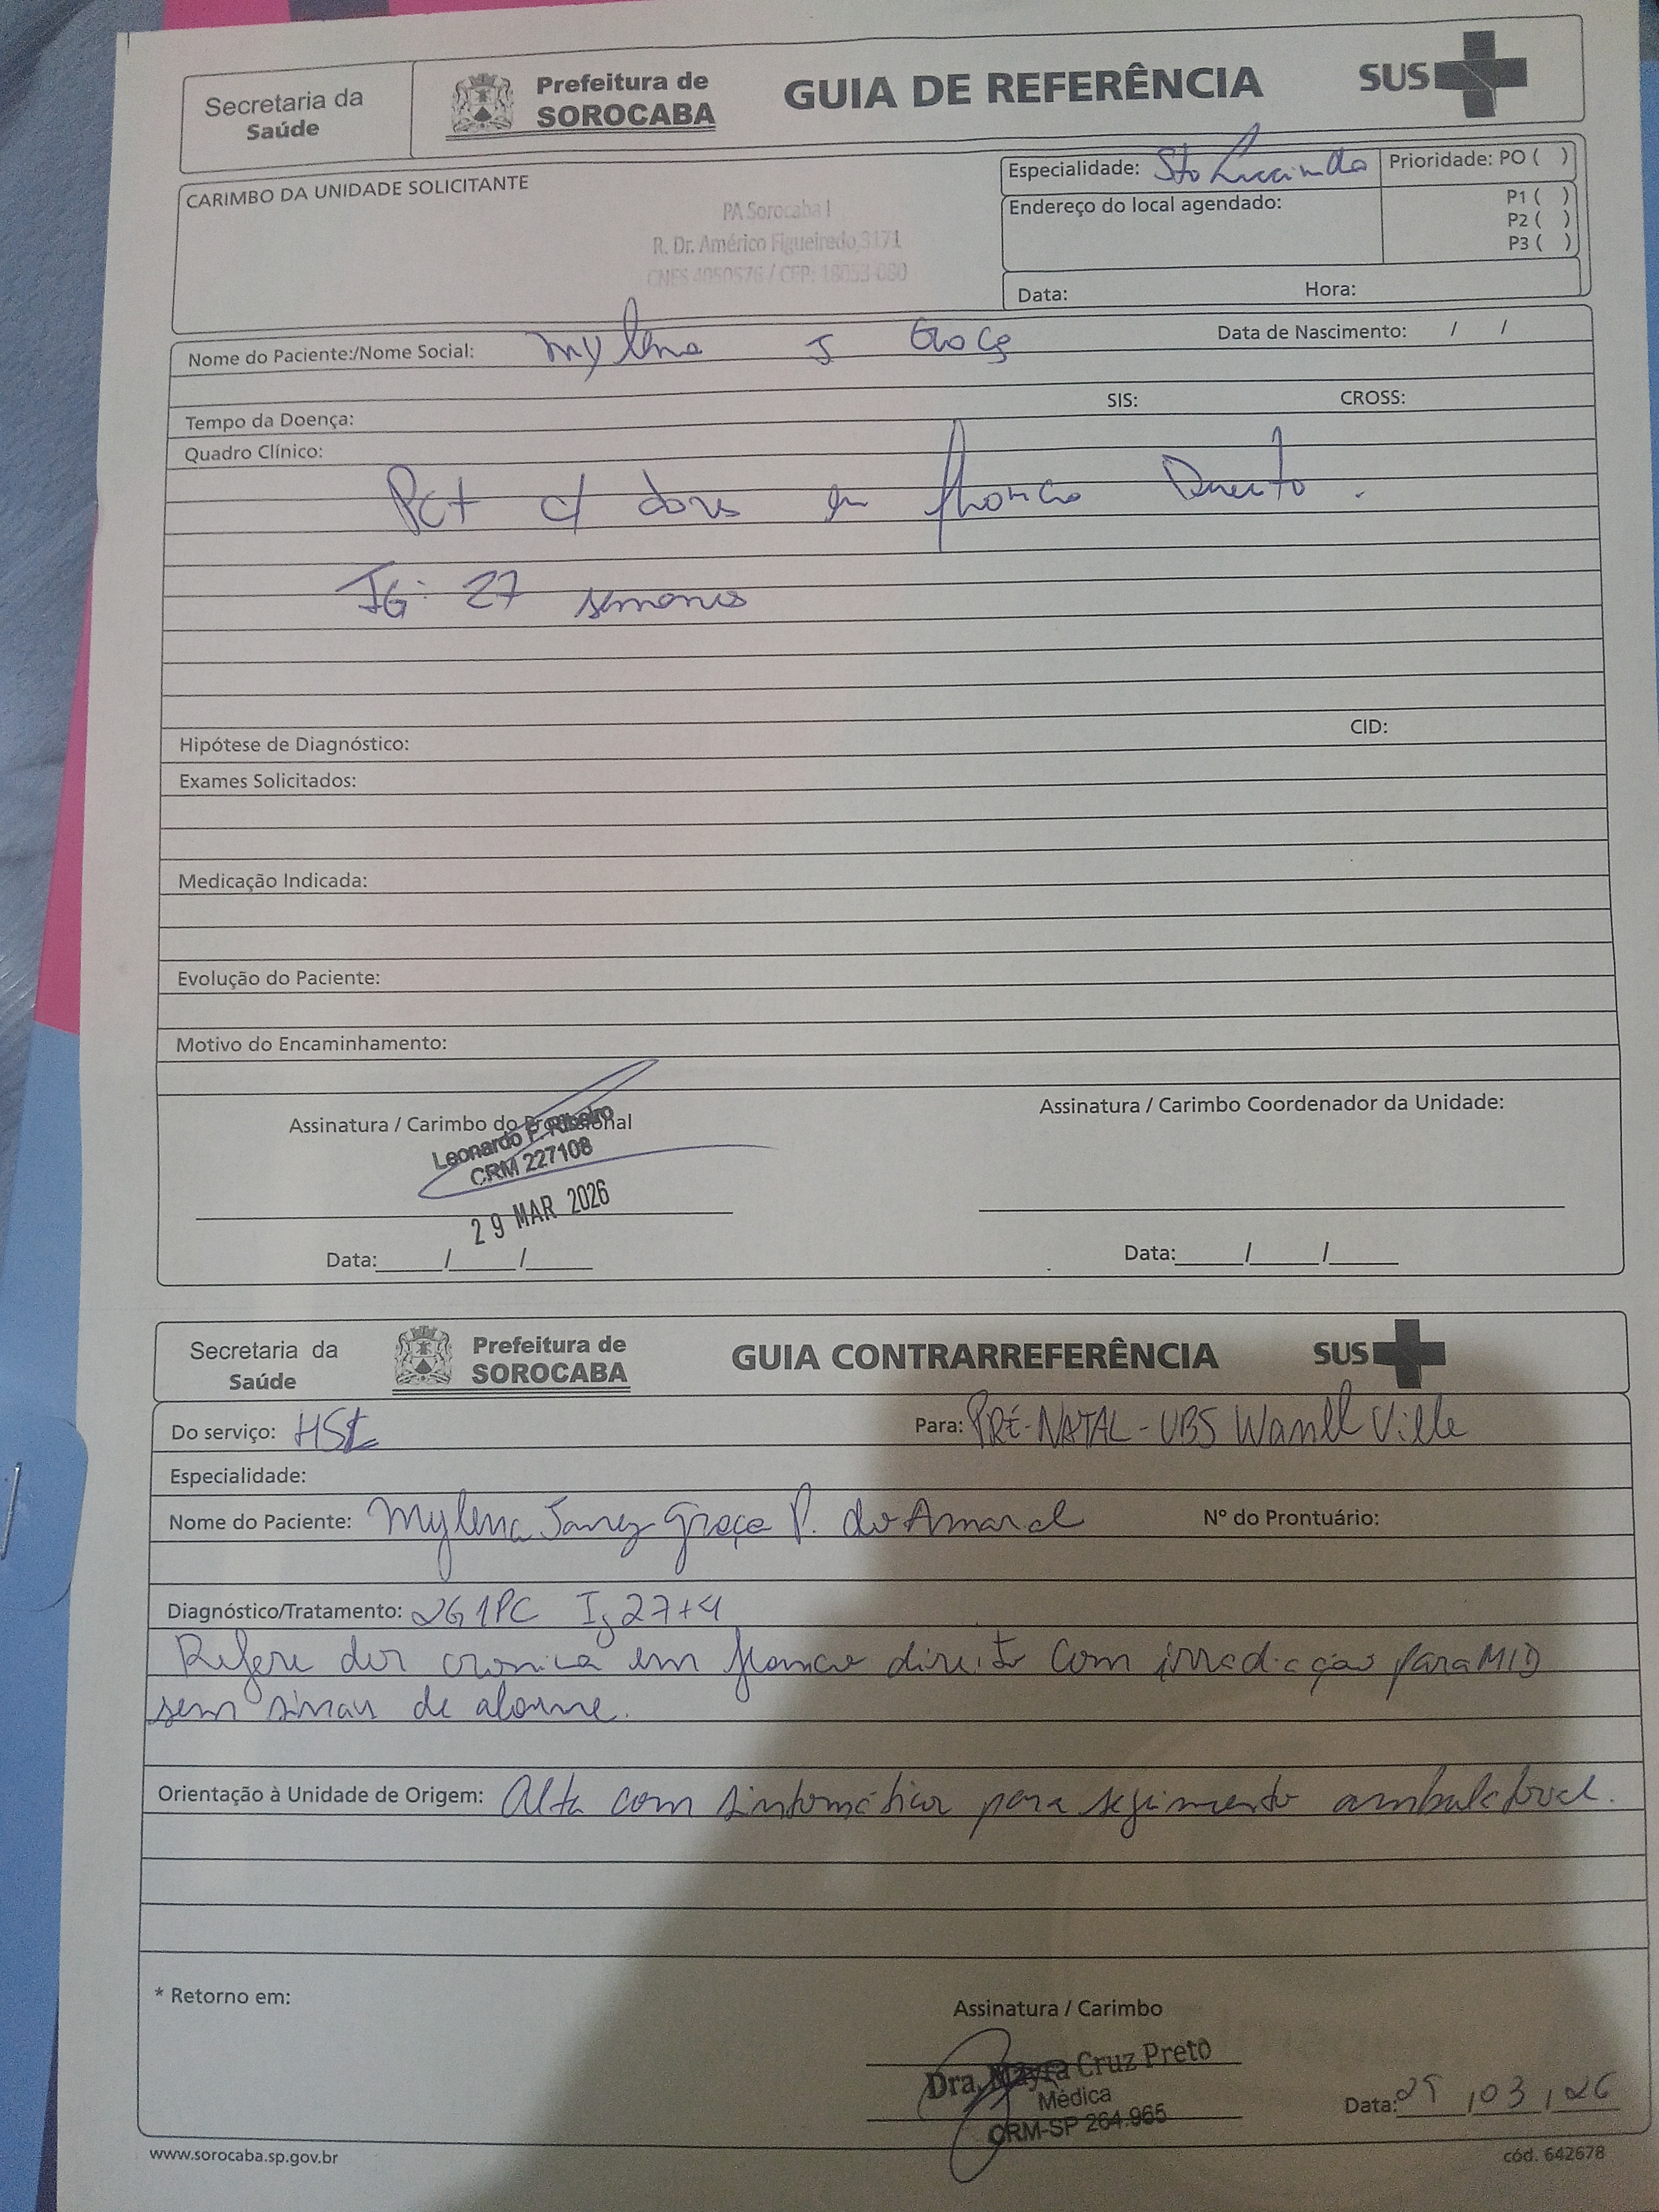 Secretaria da
Saúde
Prefeitura de
SOROCABA
GUIA DE REFERÊNCIA
SUS
CARIMBO DA UNIDADE SOLICITANTE
PA Sorocaba I
R. Dr. Américo Figueiredo, 3171
CNES 4050576 / CEP: 18053-080
Especialidade: Sta Lucinda
Prioridade: PO ( )
P1 ( )
P2 ( )
P3 ( )
Endereço do local agendado:
Data: Hora:
Nome do Paciente:/Nome Social: Mylena J Graça Data de Nascimento: / /
SIS: CROSS:
Tempo da Doença:
Quadro Clínico:
Pct c/ dores em flanco Direito.
IG: 27 semanas
CID:
Hipótese de Diagnóstico:
Exames Solicitados:
Medicação Indicada:
Evolução do Paciente:
Motivo do Encaminhamento:
Assinatura / Carimbo do Profissional
Leonardo F. Ribeiro
CRM 227108
29 MAR 2026
Data: / /
Assinatura / Carimbo Coordenador da Unidade:
Data: / /
Secretaria da
Saúde
Prefeitura de
SOROCABA
GUIA CONTRARREFERÊNCIA
SUS
Do serviço: HSL Para: PRÉ-NATAL - UBS Wanel Ville
Especialidade:
Nome do Paciente: Mylena Graça P. do Amaral Nº do Prontuário:
Diagnóstico/Tratamento: 2G1PC Ig 27+4
Refere dor cronica em flanco direito com irradiação para MID
sem sinais de alarme.
Orientação à Unidade de Origem: Alta com sintomáticos para segimento ambulatorial.
* Retorno em:
Assinatura / Carimbo
Dra. Mayra Cruz Preto
Médica
CRM-SP 264.965
Data: 29/03/26
www.sorocaba.sp.gov.br
cód. 642678